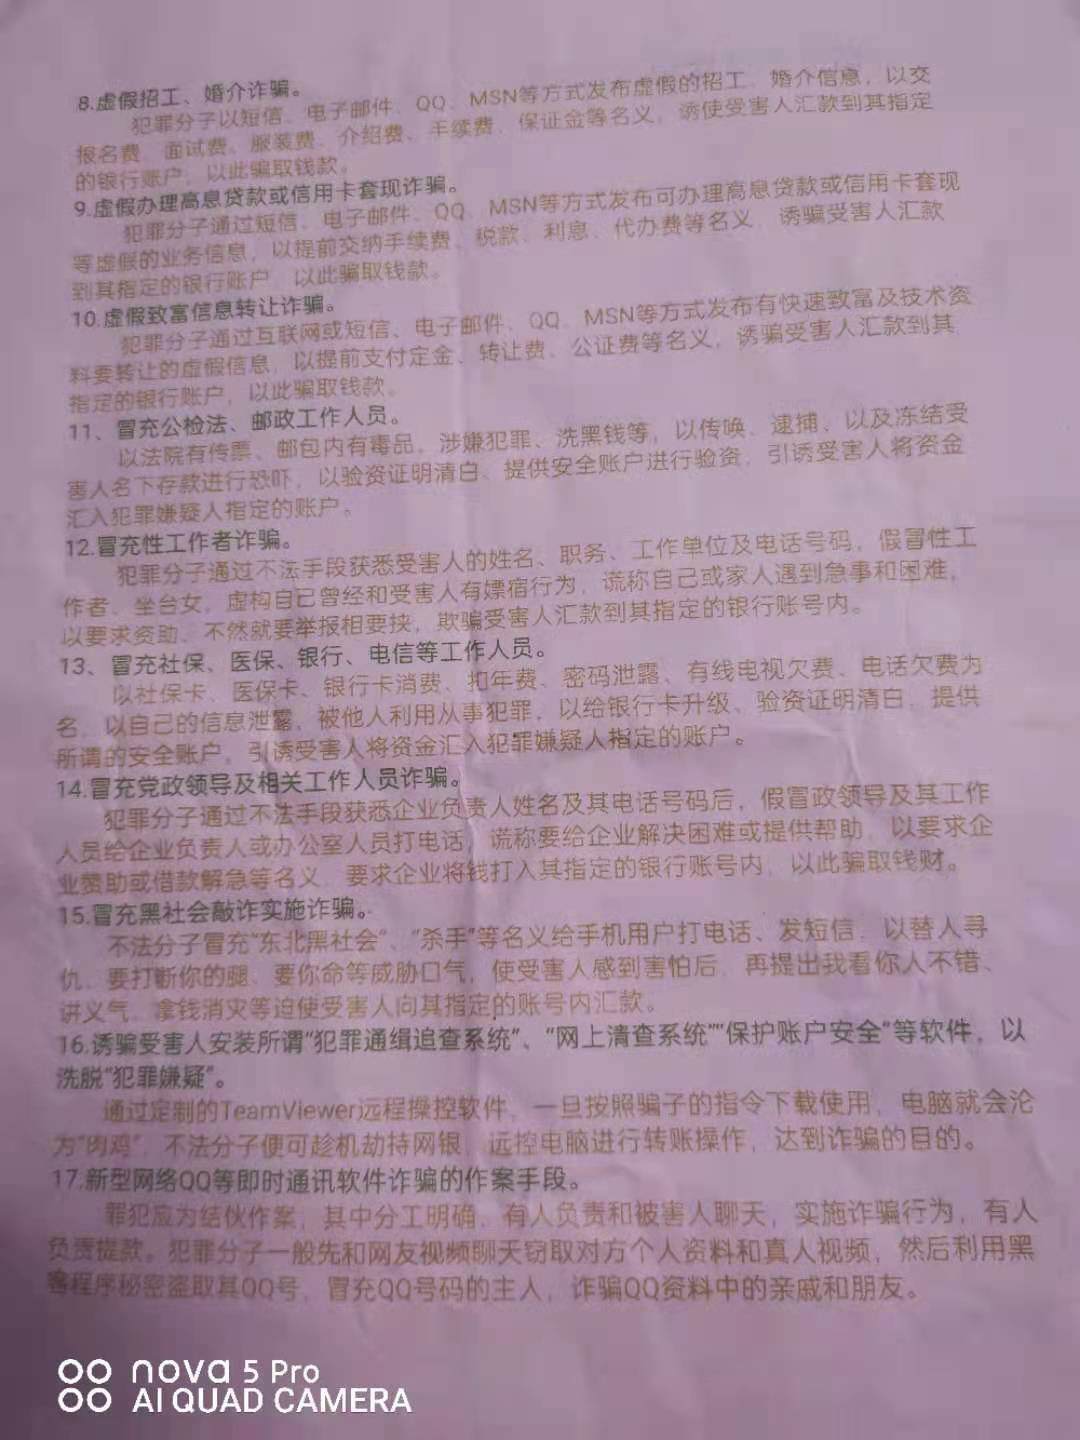 8.虚假招工、婚介诈骗。
犯罪分子以短信、电子邮件、QQ、MSN等方式发布虚假的招工、婚介信息，以交
报名费、面试费、服装费、介绍费、手续费、保证金等名义，诱使受害人汇款到其指定
的银行账户，以此骗取钱款。
9.虚假办理高息贷款或信用卡套现诈骗。
犯罪分子通过短信、电子邮件、QQ、MSN等方式发布可办理高息贷款或信用卡套现
等虚假的业务信息，以提前交纳手续费、税款、利息、代办费等名义，诱骗受害人汇款
到其指定的银行账户，以此骗取钱款。
10.虚假致富信息转让诈骗。
犯罪分子通过互联网或短信、电子邮件、QQ、MSN等方式发布有快速致富及技术资
料要转让的虚假信息，以提前支付定金、转让费、公证费等名义，诱骗受害人汇款到其
指定的银行账户，以此骗取钱款。
11、冒充公检法、邮政工作人员。
以法院有传票、邮包内有毒品，涉嫌犯罪、洗黑钱等，以传唤、逮捕、以及冻结受
害人名下存款进行恐吓，以验资证明清白、提供安全账户进行验资，引诱受害人将资金
汇入犯罪嫌疑人指定的账户。
12.冒充性工作者诈骗。
犯罪分子通过不法手段获悉受害人的姓名、职务、工作单位及电话号码，假冒性工
作者、坐台女，虚构自己曾经和受害人有嫖宿行为，谎称自己或家人遇到急事和困难，
以要求资助、不然就要举报相要挟，欺骗受害人汇款到其指定的银行账号内。
13、冒充社保、医保、银行、电信等工作人员。
以社保卡、医保卡、银行卡消费、扣年费、密码泄露、有线电视欠费、电话欠费为
名，以自己的信息泄露，被他人利用从事犯罪，以给银行卡升级、验资证明清白，提供
所谓的安全账户，引诱受害人将资金汇入犯罪嫌疑人指定的账户。
14.冒充党政领导及相关工作人员诈骗。
犯罪分子通过不法手段获悉企业负责人姓名及其电话号码后，假冒政领导及其工作
人员给企业负责人或办公室人员打电话，谎称要给企业解决困难或提供帮助，以要求企
业赞助或借款解急等名义，要求企业将钱打入其指定的银行账号内，以此骗取钱财。
15.冒充黑社会敲诈实施诈骗。
不法分子冒充“东北黑社会”、“杀手”等名义给手机用户打电话、发短信，以替人寻
仇、要打断你的腿、要你命等威胁口气，使受害人感到害怕后，再提出我看你人不错、
讲义气、拿钱消灾等迫使受害人向其指定的账号内汇款。
16.诱骗受害人安装所谓“犯罪通缉追查系统”、“网上清查系统”“保护账户安全”等软件，以
洗脱“犯罪嫌疑”。
通过定制的TeamViewer远程操控软件，一旦按照骗子的指令下载使用，电脑就会沦
为“肉鸡”，不法分子便可趁机劫持网银，远控电脑进行转账操作，达到诈骗的目的。
17.新型网络QQ等即时通讯软件诈骗的作案手段。
罪犯应为结伙作案，其中分工明确，有人负责和被害人聊天，实施诈骗行为，有人
负责提款。犯罪分子一般先和网友视频聊天窃取对方个人资料和真人视频，然后利用黑
客程序秘密盗取其QQ号，冒充QQ号码的主人，诈骗QQ资料中的亲戚和朋友。
nova 5 Pro
AI QUAD CAMERA